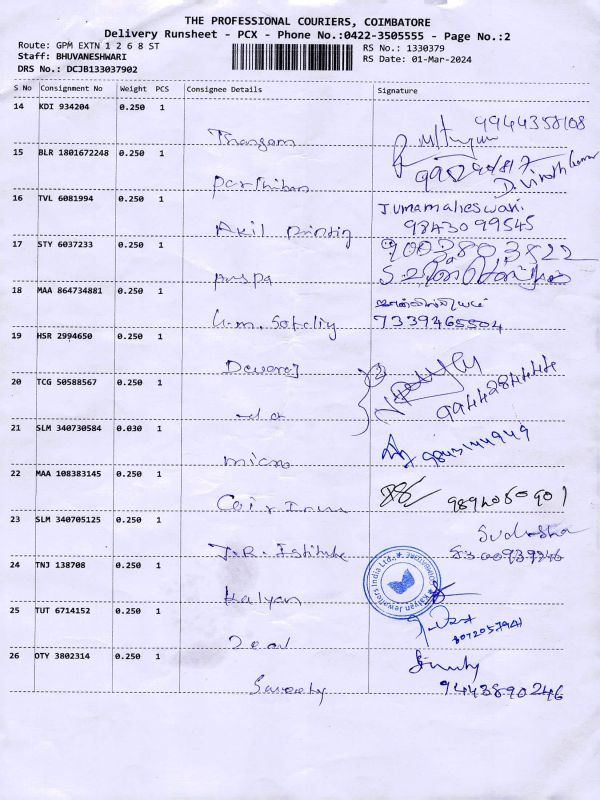 THE PROFESSIONAL COURIERS, COIMBATORE
Delivery Runsheet - PCX - Phone No.:0422-3505555 - Page No.:2
Route: GPM EXTN 1 2 6 8 ST
RS No.: 1330379
Staff: BHUVANESHWARI
RS Date: 01-Mar-2024
DRS No.: DCJB133037902
S No Consignment No Weight PCS Consignee Details Signature
14 KDI 934204 0.250 1
9944358108
Thangam
15 BLR 1801672248 0.250 1
D. Vinoth Kumar
Parthiban
16 TVL 6081994 0.250 1
J Umamaheswari
Akil Printig 9843099545
17 STY 6037233 0.250 1
9003803822
Puspa
18 MAA 864734881 0.250 1
7339465504
19 HSR 2994650 0.250 1
Devaraj
20 TCG 50588567 0.250 1
9944284444
21 SLM 340730584 0.030 1
micro
22 MAA 108383145 0.250 1
9894050901
23 SLM 340705125 0.250 1
J.R. Istitute
24 TNJ 138708 0.250 1
Kalyan Jewellers India Ltd.
Kalyan
25 TUT 6714152 0.250 1
26 OTY 3802314 0.250 1
9443890246